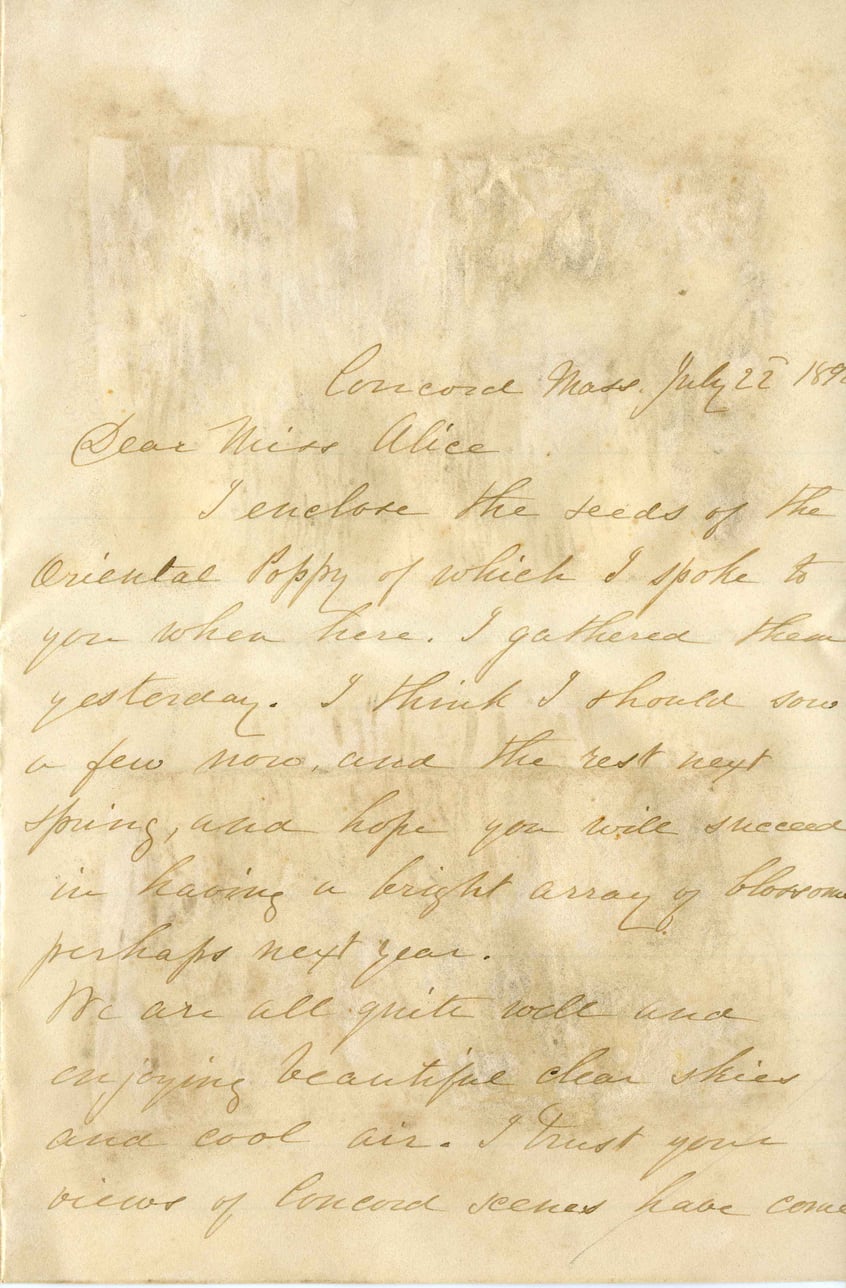 Concord Mass. July 22 189
Dear Miss Alice
I enclose the seeds of the
Oriental Poppy of which I spoke to
you when here. I gathered them
yesterday. I think I should sow
a few now, and the rest next
spring, and hope you will succeed
in having a bright array of blossoms
perhaps next year.
We are all quite well and
enjoying beautiful clear skies
and cool air. I trust your
views of Concord scenes have come